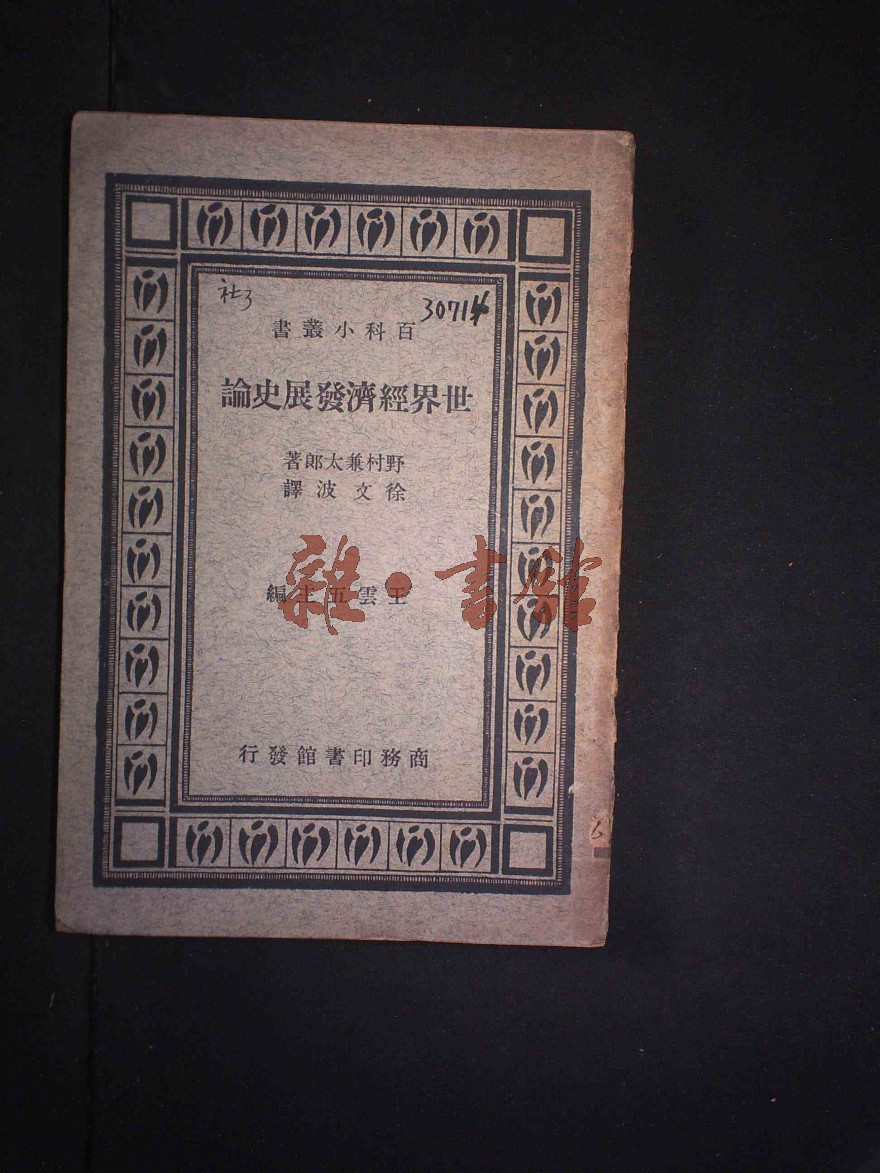 社3
30714
百科小叢書
世界經濟發展史論
野村兼太郎著
徐文波譯
王雲五主編
雜·書館
商務印書館發行